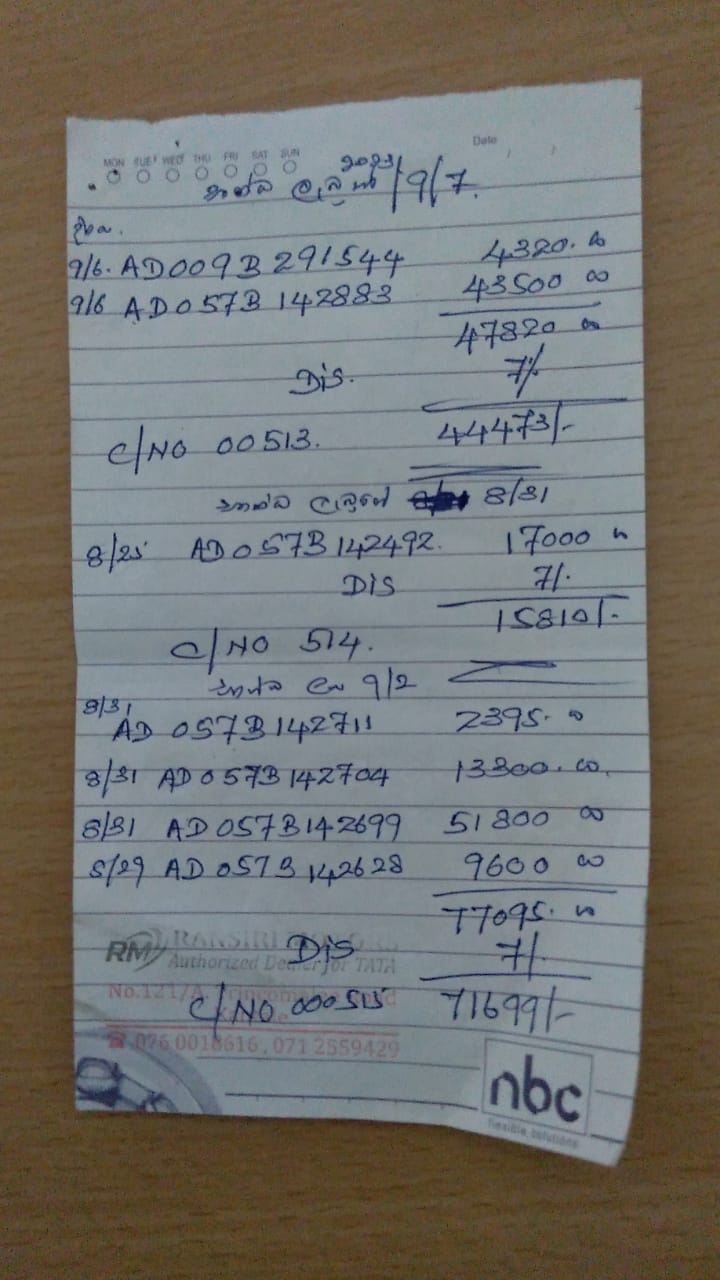 Date
MON TUE WED THU FRI SAT SUN
2023/9/7.
9/6. AD009B 291544 4320. 00
9/6 AD057B 142883 43500 00
47820 00
Dis. 7%
C/NO 00513. 44473/-
8/31
8/25 AD057B142492. 17000 00
DIS 7%
15810/-
C/NO 514.
9/2
8/31 AD 057B142711 2395. 00
8/31 AD057B142704 13300. 00
8/31 AD057B142699 51800 00
8/29 AD057B142628 9600 00
77095. 00
RM RANSIRI MOTORS
Dis 7%
Authorized Dealer for TATA
C/NO 000515 71699/-
076 0018616, 071 2559429
nbc
flexible solutions